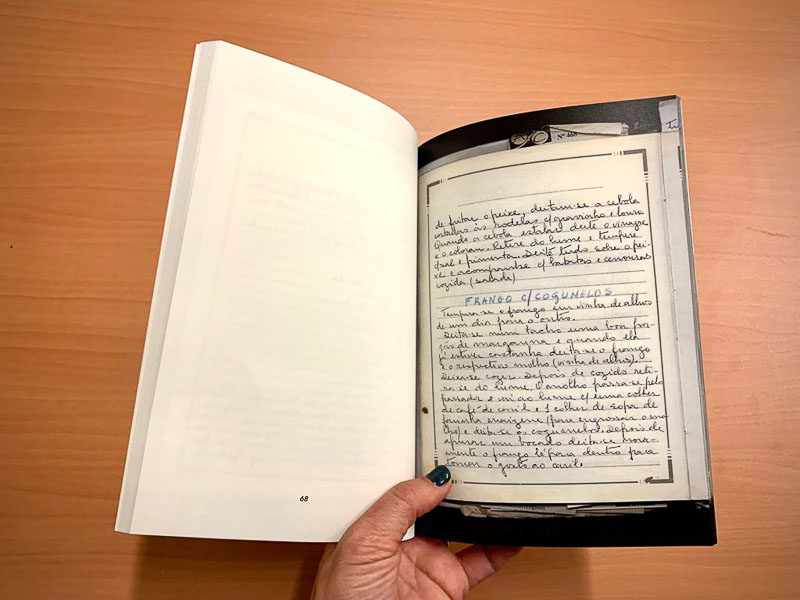 68
Nº 468
de fritar o peixe, deitam-se a cebola
cortadas às rodelas c/ grãozinho e louro
Quando a cebola estalar deite o vinagre
e o colorau. Retire do lume e tempere
c/ sal e pimenta. Deite tudo sobre o pei-
xe e acompanhe c/ batatas e cenouras
cozida (salada)
FRANGO C/COGUNELOS
Tempera-se o frango em vinha de alhos
de um dia para o outro.
Deita-se num tacho uma boa por-
ção de margarina e quando ela
já estiver castanha deita-se o frango
e o respectivo molho (vinha de alhos).
Deixa-se cozer. Depois de cozido reti-
ra-se do lume, o molho passa-se pelo
passador e vai ao lume c/ uma colher
de café de caril e 1 colher de sopa de
farinha maizena (para engrossar o mo-
lho) e deita-se os cogumelos. Depois de
apurar um bocado deita-se nova-
mente o frango lá para dentro para
tomar o gosto ao caril.